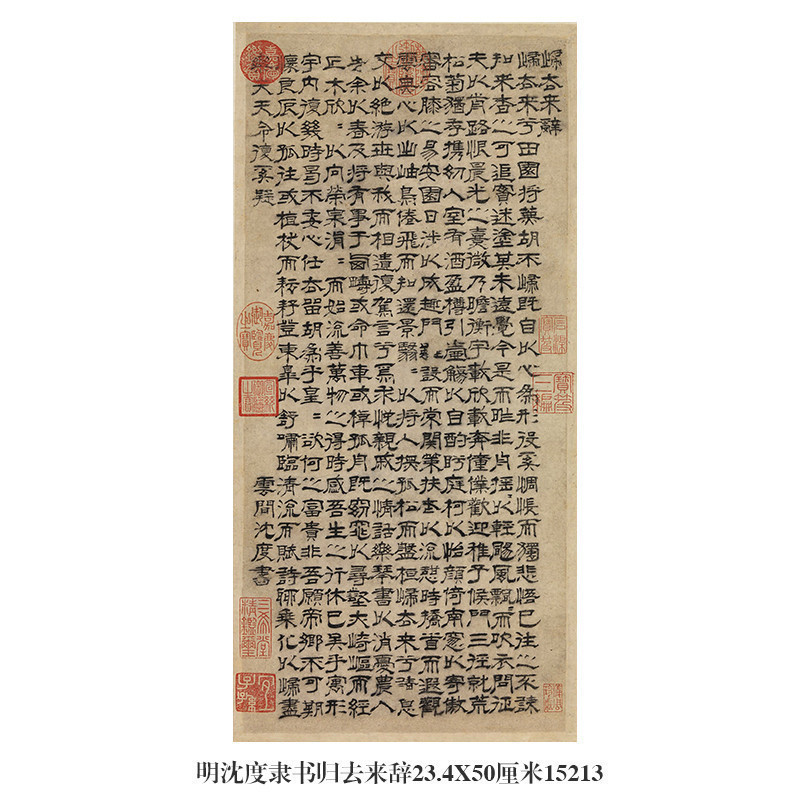 歸去來辭
歸去來兮田園將蕪胡不歸既自以心為形役奚惆悵而獨悲悟已往之不諫
知來者之可追實迷塗其未遠覺今是而昨非舟搖以輕颺風飄而吹衣問征
夫以前路恨晨光之熹微乃瞻衡宇載欣載奔僮僕歡迎稚子候門三徑就荒
松菊猶存攜幼入室有酒盈樽引壺觴以自酌眄庭柯以怡顏倚南窓以寄傲
審容膝之易安園日涉以成趣門設而常關策扶老以流憩時矯首而遐觀
雲無心以出岫鳥倦飛而知還景翳〻以將入撫孤松而盤桓歸去來兮請息
交以絕游世與我而相遺復駕言兮焉求悅親戚之情話樂琴書以消憂農人
告余以春及將有事于西疇或命巾車或棹孤舟既窈窕以尋壑亦崎嶇而經
丘木欣〻以向榮泉涓〻而始流善萬物之得時感吾生之行休已矣乎寓形
宇內復幾時曷不委心任去留胡為乎皇〻欲何之富貴非吾願帝鄉不可期
懷良辰以孤往或植杖而耘耔登東皋以舒嘯臨清流而賦詩聊乘化以歸盡
樂夫天命復奚疑
雲間沈度書
嘉慶御覽之寶
三希堂精鑑璽
宜子孫
寶笈三編
明沈度隶书归去来辞23.4X50厘米15213